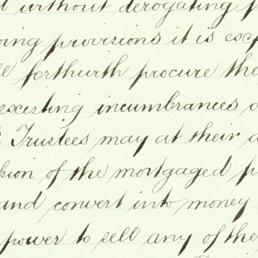 without derogating f
oing provisions it is exp
forthwith procure the
existing incumbrances o
Trustees may at their d
sion of the mortgaged p
and convert into money
power to sell any of the